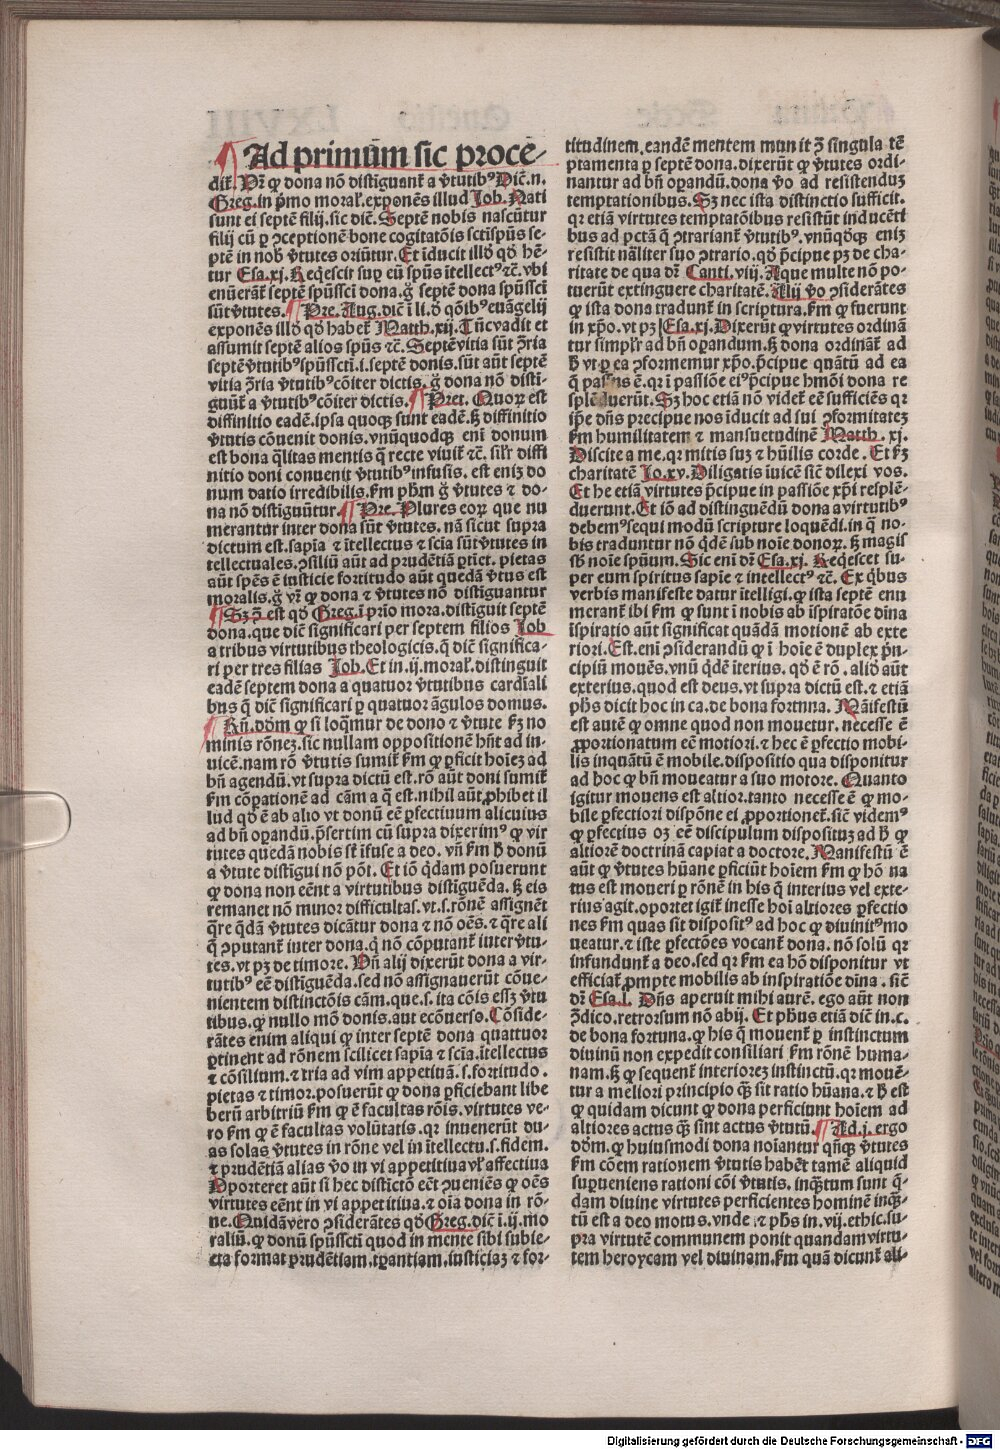 Ad primūm sic proce-
dit᷑. Vr̄ ꝙ dona nō distīguant᷑ a v̄tutibꝰ Dic̄.n.
Greg.in p̄mo moral᷑.exponēs illud Job. Nati
sunt ei septē filij. sic dic̄. Septē nobis nascūtur
filij cū ꝑ ꝯceptionē bone cogitatōis sctīspūs se-
ptē in nob̄ v̄tutes oriūtur. Et īducit illd̄ qd̄ hē-
tur Esa.xj. Reqescit suꝑ eū spūs ītellectꝰ ⁊c̄. vbi
enūerāt᷑ septē spūssci dona.g̊ septē dona spūssci
sūt v̄tutes. Pre. Aug.dic̄ ī li.d̄ qōibꝰ euāgelij
exponēs illd̄ qd̄ habet᷑ Matth.xij. Tūc vadit et
assumit septē alios spūs ⁊c̄. Septē vitia sūt ꝯ̄ria
septē v̄tutibꝰ spūssctī.i.septē donis.sūt aūt septē
vitia ꝯ̄ria v̄tutibꝰ cōiter dictis.g̊ dona nō distī-
guūt᷑ a v̄tutibꝰ cōiter dictis. Pret. Quoꝝ est
diffinitio eadē.ipsa quoqꝫ sunt eadē.sꝫ diffinitio
v̄tutis cōuenit donis.vnūquodqꝫ eni᷑ donum
est bona q̄litas mentis q̄ recte viuit᷑ ⁊c̄. sil᷑r diffi
nitio doni conuenit v̄tutibꝰ infusis. est eniꝫ do
num datio irredibilis.fm̄ phm̄ g̊ v̄tutes ⁊ do-
na nō distiguūtur. Pre. Plures eoꝝ que nu
merantur inter dona sūt v̄tutes. nā sicut supra
dictum est.sapīa ⁊ ītellectus ⁊ scīa sūt v̄tutes in
tellectuales.ꝯsiliū aūt ad prudētiā ꝑtīet᷑. pietas
aūt spēs ē iusticie fortitudo aūt quedā v̄tus est
moralis.g̊ vr̄ ꝙ dona ⁊ v̄tutes nō distiguantur
Sꝫ ꝯ̄ est qd̄ Greg.ī prīo mora.distīguit septē
dona.que dic̄ significari per septem filios Job
a tribus virtutibus theologicis.q̄ dic̄ significa-
ri per tres filias Job. Et in.ij.moral᷑.distinguit
eadē septem dona a quatuor v̄tutibus cardīali
bus q̄ dic̄ significari ꝑ quatuor āgulos domus.
Rn̄.dōm ꝙ si loq̄mur de dono ⁊ v̄tute fꝫ no
minis rōneꝫ.sic nullam oppositionē hn̄t ad in-
uicē.nam rō v̄tutis sumit᷑ fm̄ ꝙ ꝑficit hoīeꝫ ad
bn̄ agendū.vt supra dictū est.rō aūt doni sumit᷑
fm̄ cōpationē ad cām a q̄ est.nihil aūt ꝓhibet il
lud qd̄ ē ab alio vt donū eē ꝑfectiuum alicuius
ad bn̄ oꝑandū.p̄sertim cū supra dixerimꝰ ꝙ vir
tutes quedā nobis sūt īfuse a deo. vn̄ fm̄ h̄ donū
a v̄tute distīgui nō pōt. Et iō q̄dam posuerunt
ꝙ dona non eēnt a virtutibus distīguēda.sꝫ eis
remanet nō minor difficultas.vt.s.rōnē assignēt
q̄re q̄dā v̄tutes dicātur dona ⁊ nō oēs.⁊ q̄re ali
q̄ ꝯputant᷑ inter dona.q̄ nō cōputant᷑ inter v̄tu-
tes.vt pꝫ de timore. Vn̄ alij dixerūt dona a vir-
tutibꝰ eē distīguēda.sed nō assignauerūt cōue-
nientem distinctōis cām.que.s.ita cōis esseꝫ v̄tu
tibus.ꝙ nullo mō donis.aut ecōuerso.Cōside-
rātes enim aliqui ꝙ inter septē dona quattuor
ꝑtinent ad rōnem scilicet sapīa ⁊ scīa.ītellectus
⁊ cōsilium.⁊ tria ad vim appetituā.s.fortitudo.
pietas ⁊ timor.posuerūt ꝙ dona ꝑficiebant libe
berū arbitriū fm̄ ꝙ ē facultas rōis.virtutes ve-
ro fm̄ ꝙ ē facultas volūtatis. qr inuenerūt du-
as solas v̄tutes in rōne vel in ītellectu.s.fidem.
⁊ prudētiā alias v̄o in vi appetitiua vl᷑ affectiua
Oporteret aūt si hec distictō eēt ꝯueniēs ꝙ oēs
virtutes eēnt in vi appetitiua.⁊ oīa dona in rō-
ne.Quidā vero ꝯsiderātes qd̄ Greg.dic̄ ī.ij.mo
raliū.ꝙ donū spūssctī quod in mente sibi subie-
cta format prudētiam.tꝑantiam.iusticiaꝫ ⁊ for-
titudinem.eandē mentem munit ꝯ̄ singula tē
ptamenta ꝑ septē dona.dixerūt ꝙ v̄tutes ordi-
nantur ad bn̄ oꝑandū.dona v̄o ad resistenduꝫ
temptationibus. Sꝫ nec ista distinctio sufficit.
qr etiā virtutes temptatōibus resistūt inducēti
bus ad pctā q̄ ꝯtrariant᷑ v̄tutibꝰ.vnūqd̄qꝫ eniꝫ
resistit nāliter suo ꝯtrario.qd̄ p̄cipue pꝫ de cha-
ritate de qua dr̄ Canti.viij. Aque multe nō po-
tuerūt extinguere charitatē. Alij v̄o ꝯsiderātes
ꝙ ista dona tradunt᷑ in scriptura.fm̄ ꝙ fuerunt
in xp̄o.vt pꝫ Esa.xj. Dixerūt ꝙ virtutes ordinā
tur simpl᷑r ad bn̄ oꝑandum.sꝫ dona ordinat᷑ ad
h̄ vt ꝑ ea ꝯformemur xp̄o.p̄cipue quātū ad ea
q̄ passus ē.qr ī passiōe eiꝰ p̄cipue hmōi dona re
splēduerūt. Sꝫ hoc etiā nō videt᷑ eē sufficiēs qr
ip̄e dn̄s precipue nos īducit ad sui ꝯformitateꝫ
fm̄ humilitatem ⁊ mansuetudinē Matth. xj.
Discite a me.qr mitis suꝫ ⁊ hūilis corde. Et fꝫ
charitatē Io.xv. Diligatis īuicē sic̄ dilexi vos.
Et he etiā virtutes p̄cipue in passiōe xp̄i resplē-
duerunt. Et iō ad distinguēdū dona a virtutibꝰ
debemꝰ sequi modū scripture loquēdi.in q̄ no-
bis traduntur nō q̄dē sub noīe donoꝝ. sꝫ magis
sb̄ noīe spūum. Sic eni᷑ dr̄ Esa.xj. Reqescet su-
per eum spiritus sapīe ⁊ intellectꝰ ⁊c̄. Ex q̄bus
verbis manifeste datur ītelligi.ꝙ ista septē enu
merant᷑ ibi fm̄ ꝙ sunt ī nobis ab īspiratōe dīna
īspiratio aūt significat quādā motionē ab exte
riori.Est.eni᷑ ꝯsiderandū ꝙ ī hoīe ē duplex p̄n-
cipiū mouēs.vnū q̄dē īterius. qd̄ ē rō . aliō aūt
exterius.quod est deus.vt supra dictū est.⁊ etiā
phs̄ dicit hoc in ca. de bona fortnna. Māifestū
est autē ꝙ omne quod non mouetur. necesse ē
ꝓportionatum eē motiori.⁊ hec ē ꝑfectio mobi-
lis inquātū ē mobile.dispositio qua disponitur
ad hoc ꝙ bn̄ moueatur a suo motore. Quanto
igitur mouens est altior.tanto necesse ē ꝙ mo-
bile ꝑfectiori dispōne ei ꝓportionet᷑.sic̄ videmꝰ
ꝙ ꝑfectius oꝫ eē discipulum dispositūꝫ ad h̄ ꝙ
altiorē doctrinā capiat a doctore. Manifestū ē
aūt ꝙ v̄tutes hūane ꝑficiūt hoīem fm̄ ꝙ hō na
tus est moueri ꝑ rōnē in his q̄ interius vel exte-
rius agit.oportet igit᷑ inesse hoī altiores ꝑfectio
nes fm̄ quas sit dispositꝰ ad hoc ꝙ diuinitꝰ mo
ueatur.⁊ iste ꝑfectōes vocant᷑ dona. nō solū qr
infundunt᷑ a deo.sed qr fm̄ ea hō disponitur vt
efficiat᷑ ꝓmpte mobilis ab inspiratiōe dīna. sic̄
dr̄ Esa.l. Dn̄s aperuit mihi aurē. ego aūt non
ꝯ̄dico.retrorsum nō abij. Et phūs etiā dic̄ in.c.
de bona fortuna.ꝙ his q̄ mouent᷑ ꝑ instinctum
diuinū non expedit consiliari fm̄ rōnē huma-
nam.sꝫ ꝙ sequent᷑ interiorez instinctū.qr mouē-
tur a meliori principio q̄ꝫ sit ratio hūana.⁊ h̄ est
ꝙ quidam dicunt ꝙ dona perficiunt hoīem ad
altiores actus q̄ꝫ sint actus v̄tutū. Ad.j. ergo
dōm.ꝙ huiusmodi dona noīantur qn̄qꝫ v̄tutes
fm̄ cōem rationem v̄tutis habēt tamē aliquid
suꝑueniens rationi cōi v̄tutis. inq̄ꝫtum sunt q̄-
dam diuine virtutes perficientes hominē inq̄ꝫ-
tū est a deo motus.vnde ⁊ phs̄ in.vij.ethic.su-
pra virtutē communem ponit quandam virtu-
tem heroycam vel diuinam.fm̄ quā dicunt᷑ ali-
Digitalisierung gefördert durch die Deutsche Forschungsgemeinschaft - DFG